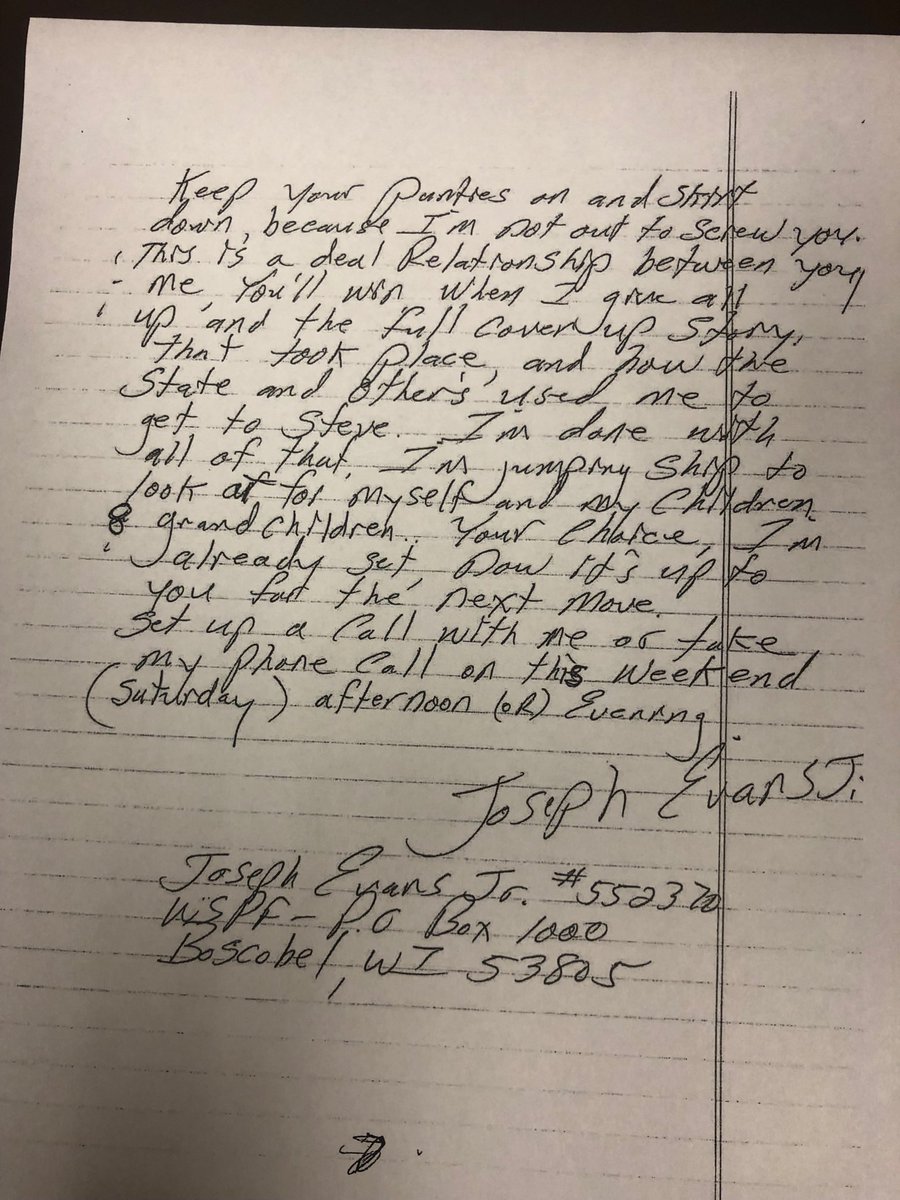 Keep your panties on and shirt
down, because I'm not out to screw you.
This is a deal Relationship between you,
me, You'll win when I give all
up, and the full cover up story,
that took place, and how the
State and other's used me to
get to Steve. I'm done with
all of that, I'm jumping ship to
look at for myself and my Children
& grandchildren.. Your Choice, I'm
already set, Now it's up to
you for the next move.
Set up a Call with me or take
my phone call on this weekend
(Saturday) afternoon (OR) Evening.
Joseph Evans Jr.
Joseph Evans Jr. #552370
WSPF - P.O Box 1000
Boscobel, WI 53805